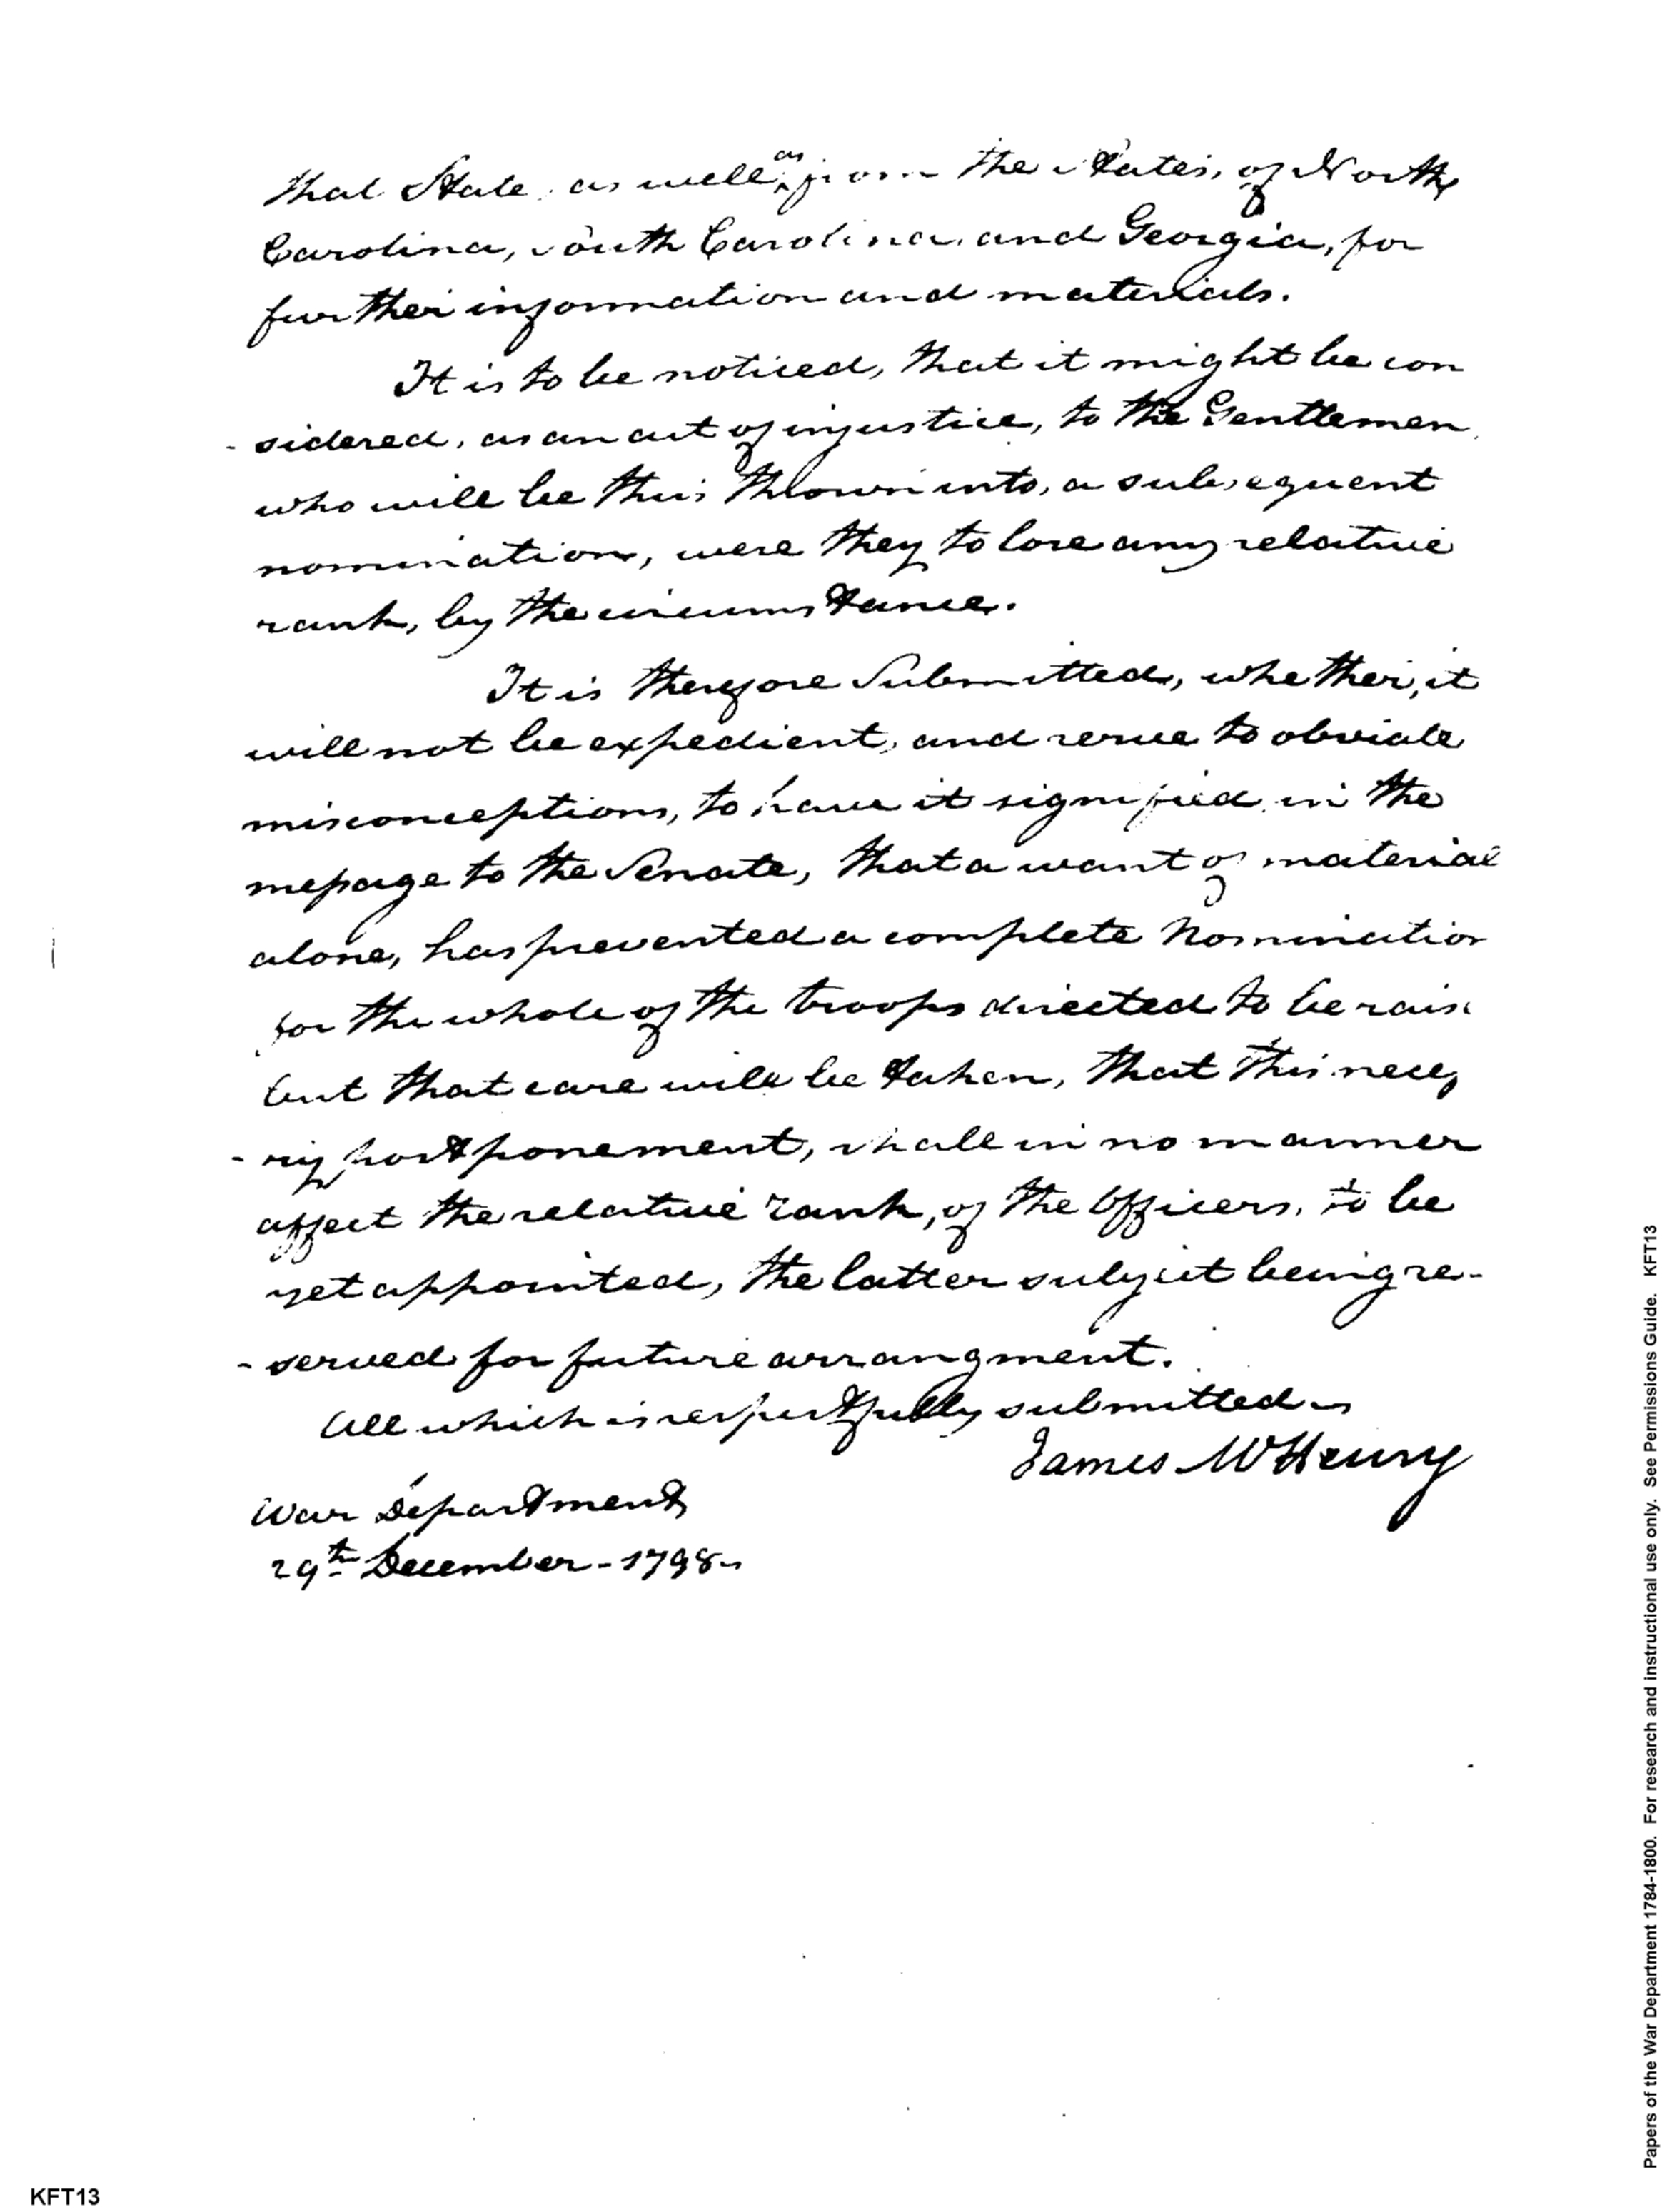 that State, as well as from the States, of North
Carolina, South Carolina, and Georgia, for
further information and materials.
It is to be noticed, that it might be con
- sidered, as an act of injustice, to the Gentlemen
who will be thus thrown into, a subsequent
nomination, were they to lose any relative
rank, by the circumstance.
It is therefore Submitted, whether, it
will not be expedient, and serve to obviate
misconceptions, to have it signified in the
message to the Senate, that a want of material
alone, has prevented a complete Nomination
for the whole of the troops directed to be rais
but that care will be taken, that this necess
- ry postponement, shall in no manner
affect the relative rank, of the Officers, to be
yet appointed, the latter subject being re-
- served for future arrangment.
All which is respectfully submitted
James McHenry
War Department
29th December - 1798
Papers of the War Department 1784-1800. For research and instructional use only. See Permissions Guide. KFT13
KFT13